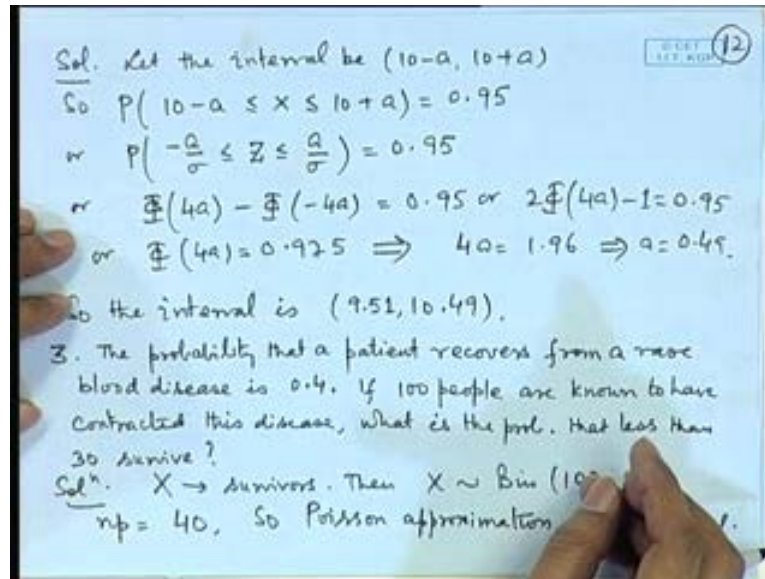 12
Sol. Let the interval be (10-a, 10+a)
So P( 10-a ≤ X ≤ 10+a) = 0.95
or P( -a/σ ≤ Z ≤ a/σ ) = 0.95
or Φ(4a) - Φ(-4a) = 0.95 or 2Φ(4a)-1=0.95
or Φ(4a) = 0.925 ⟹ 4a = 1.96 ⟹ a = 0.49.
So the interval is (9.51, 10.49).
3. The probability that a patient recovers from a rare
blood disease is 0.4. If 100 people are known to have
contracted this disease, what is the prob. that less than
30 survive?
Solⁿ. X → survivors. Then X ~ Bin (10
np = 40, So Poisson approximation